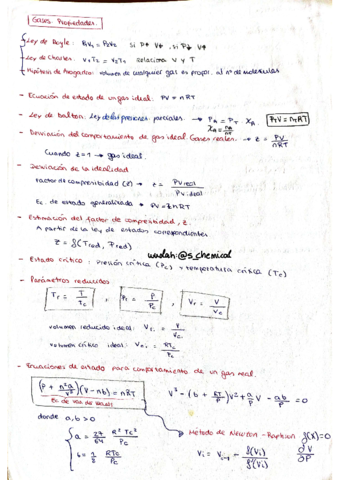 Gases Propiedades.
Ley de Boyle: P₁V₁ = P₂V₂ si P↑ V↓, si P↓ V↑
Ley de Charles: V₁T₂ = V₂T₁ relaciona V y T
Hipótesis de Avogadro: volumen de cualquier gas es propor. al nº de moléculas
- Ecuación de estado de un gas ideal: PV = nRT
- Ley de Dalton: Ley de las presiones parciales. → P_A = P_T X_A PₜV = nₜRT
X_A =
- Desviación del comportamiento de gas ideal. Gases reales. → z = PV / nRT
Cuando z = 1 → gas ideal.
- Desviación de la idealidad
Factor de compresibilidad (z) → z = PV real / PV ideal
Ec. de estado generalizada → PV = z nRT
- Estimación del factor de compresibilidad, z.
A partir de la ley de estados correspondientes
z = f(Tred, Pred)
wuolah: @s_chemical
- Estado crítico: Presión crítica (Pc) y temperatura crítica (Tc)
- Parámetros reducidos
Tr = T / Tc , Pr = P / Pc , Vr = V / Vc
volumen reducido ideal: Vri = V / Vci
volumen crítico ideal: = RTc / Pc
- Ecuaciones de estado para comportamiento de un gas real.
(P + n²a / V²)(V - nb) = nRT V³ - (b + RT / P)V² + a / P V - ab / P = 0
Ec de Van de Waals
donde a, b > 0
a = 27 / 64 R² Tc² / Pc
b = 1 / 8 RTc / Pc
Método de Newton - Raphson f(x) = 0
Vi = Vi-1 - f(Vi) / f'(Vi) ∂V / ∂P